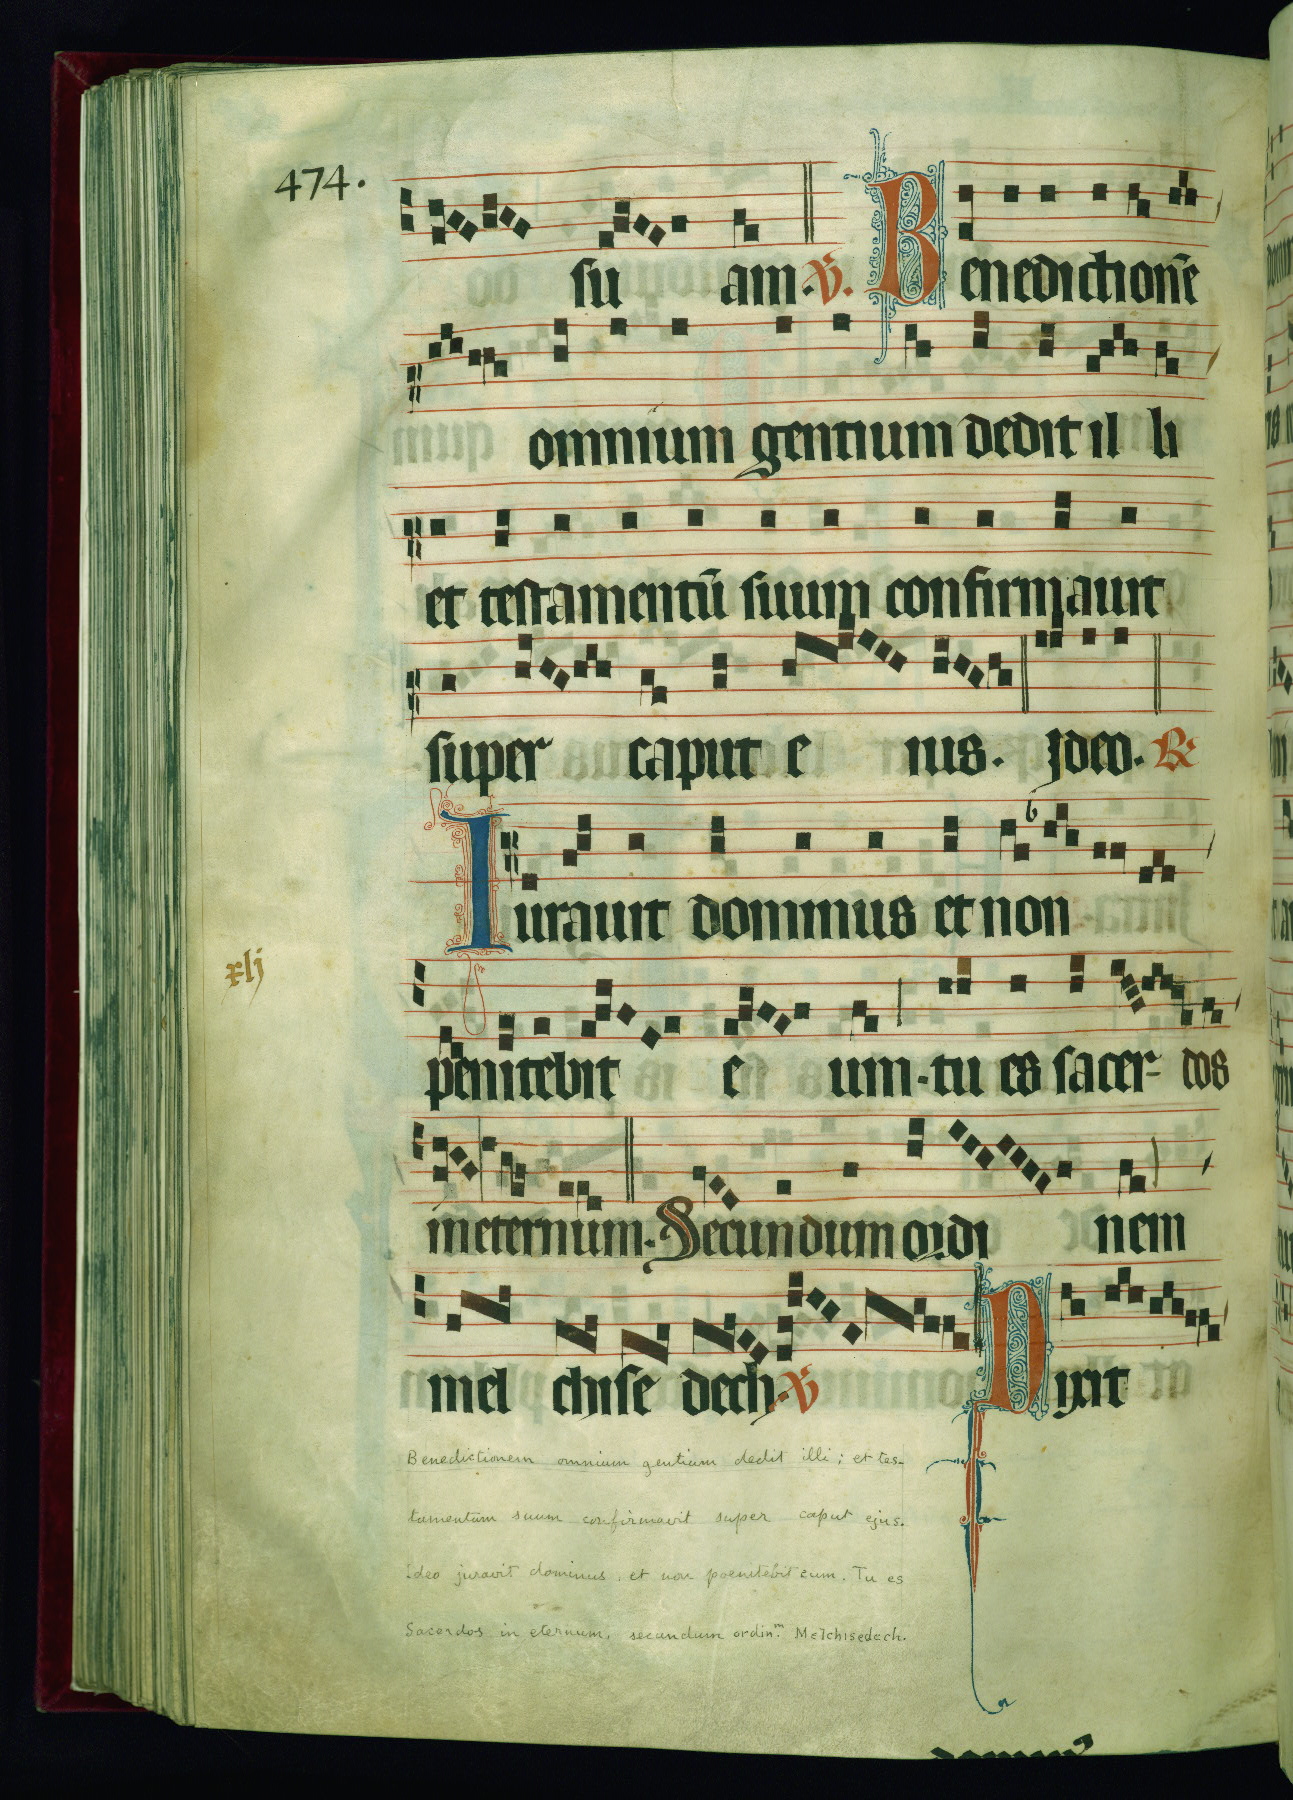 474.
su am. V. Benedictionē
omnium gentium dedit il li
et testamentū suum confirmauit
super caput e ius. Ideo. R
Iurauit dominus et non
xlj
penitebit e um. tu es sacer- dos
ineternum. Secundum ordi nem
mel chise dech. V Dixit
Benedictionem omnium gentium dedit illi; et tes-
tamentum suum confirmavit super caput ejus.
Ideo juravit dominus, et non poenitebit eum. Tu es
Sacerdos in eternum, secundum ordin.m Melchisedech.